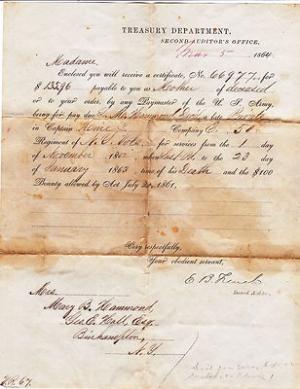 TREASURY DEPARTMENT,
SECOND AUDITOR'S OFFICE,
5 1864
Madame,
Enclosed you will receive a certificate, No. 66977, for
$ 135 96 payable to you as Mother of deceased
or to your order, by any Paymaster of the U. S. Army,
being for pay due Wm Hammond late Private
in Company Company
Regiment of N. Y. Vols for services from the 1 day
of November 1862 when to the 23
of January 1863 time of his Death and the $100
Bounty allowed by Act July 22, 1861.
Very respectfully,
Your obedient servant,
E. B. French
Second Auditor.
Mrs
Mary B. Hammond,
Geo. C. Hall, Esq.
Binghampton,
N. Y.